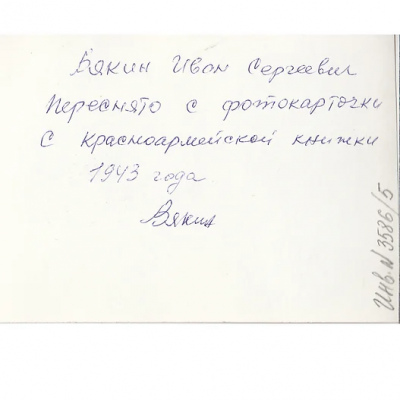 Вякин Иван Сергеевич
Переснято с фотокарточки
с красноармейской книжки
1943 года
Вякин
Инв. N 3586/5